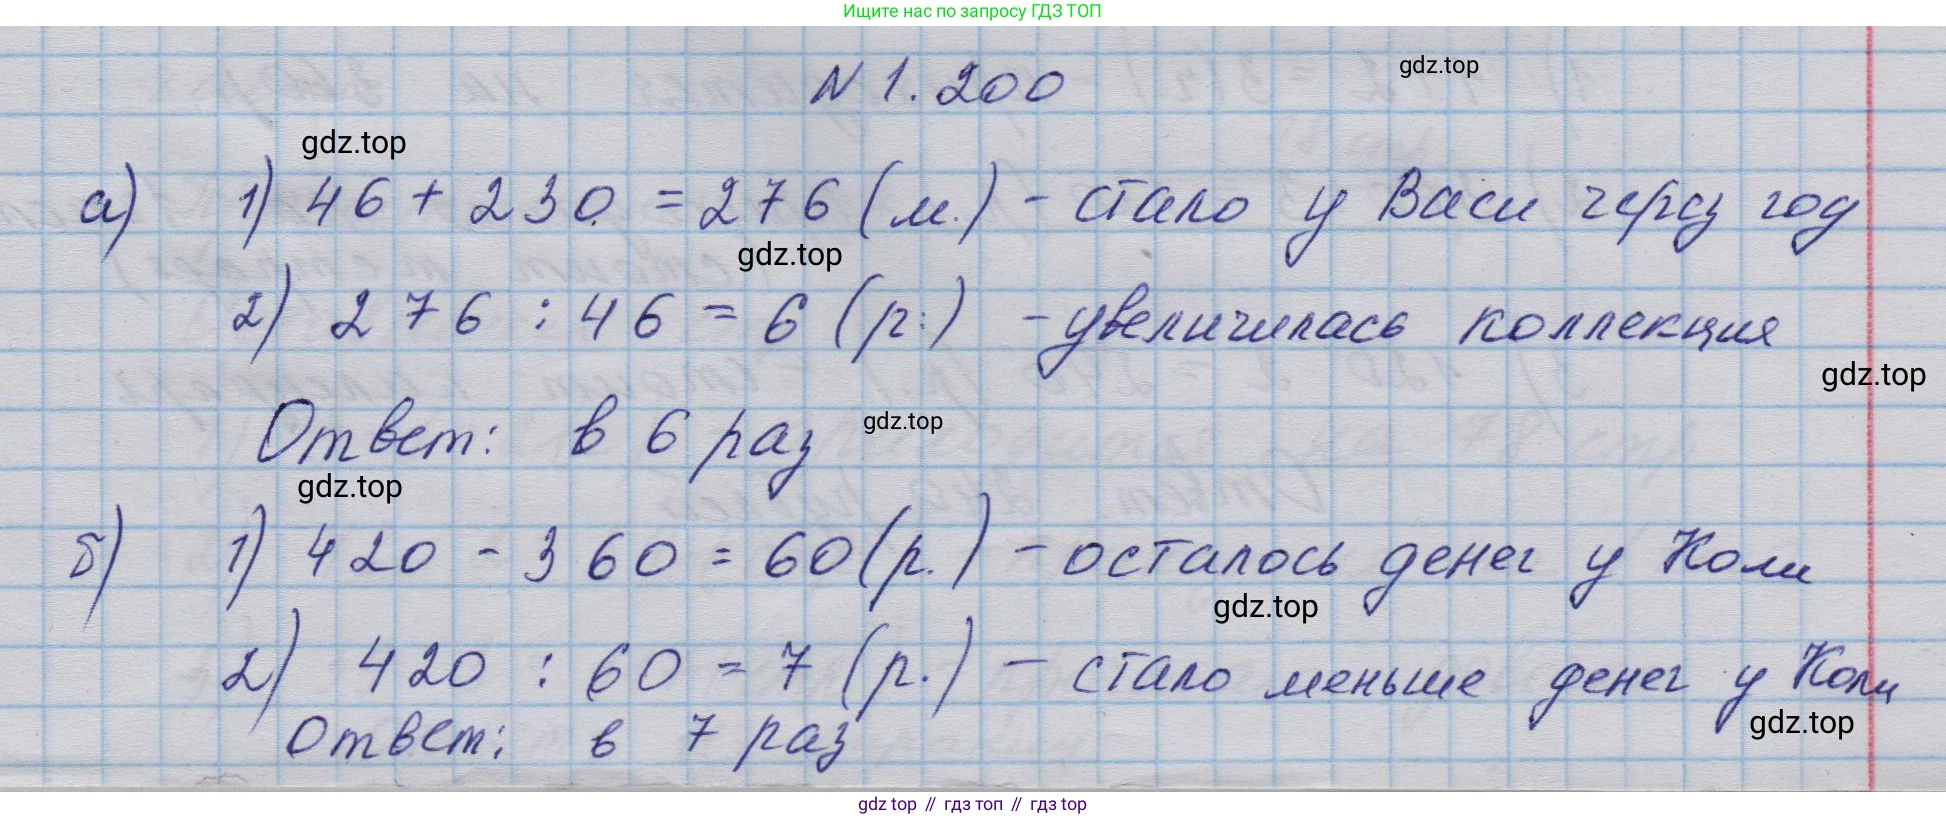 Ищите нас по запросу ГДЗ ТОП
N 1.200
gdz.top
gdz.top
а) 1) 46 + 230 = 276 (м.) - стало у Васи через год
gdz.top
2) 276 : 46 = 6 (р.) - увеличилась коллекция
gdz.top
Ответ: в 6 раз
gdz.top
gdz.top
б) 1) 420 - 360 = 60 (р.) - осталось денег у Коли
gdz.top
2) 420 : 60 = 7 (р.) - стало меньше денег у Коли
gdz.top
Ответ: в 7 раз
gdz top // гдз топ // gdz top